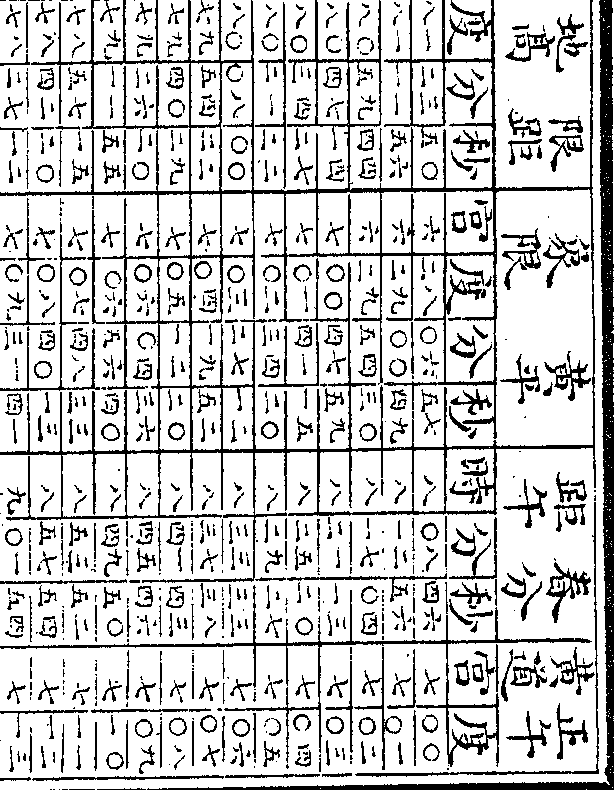 限距地高 黃平象限 春分距午 正午黃道
度 分 秒 宮 度 分 秒 時 分 秒 宮 度
八一 二三 五〇 六 二八 〇六 五七 八 〇八 四六 七 〇〇
八一 一一 五六 六 二九 〇〇 四九 八 一二 五六 七 〇一
八〇 五九 四四 六 二九 五四 三〇 八 一七 〇四 七 〇二
八〇 四七 一四 七 〇〇 四七 五九 八 二一 一三 七 〇三
八〇 三四 二七 七 〇一 四一 一五 八 二五 二〇 七 〇四
八〇 二一 二二 七 〇二 三四 二〇 八 二九 二七 七 〇五
八〇 〇八 〇〇 七 〇三 二七 一二 八 三三 三三 七 〇六
七九 五四 二二 七 〇四 一九 五二 八 三七 三八 七 〇七
七九 四〇 二九 七 〇五 一二 二〇 八 四一 四三 七 〇八
七九 二六 二〇 七 〇六 〇四 三六 八 四五 四六 七 〇九
七九 一一 五五 七 〇六 五六 四〇 八 四九 五〇 七 一〇
七八 五七 一五 七 〇七 四八 三三 八 五三 五二 七 一一
七八 四二 二〇 七 〇八 四〇 一三 八 五七 五四 七 一二
七八 二七 一二 七 〇九 三一 四一 九 〇一 五四 七 一三